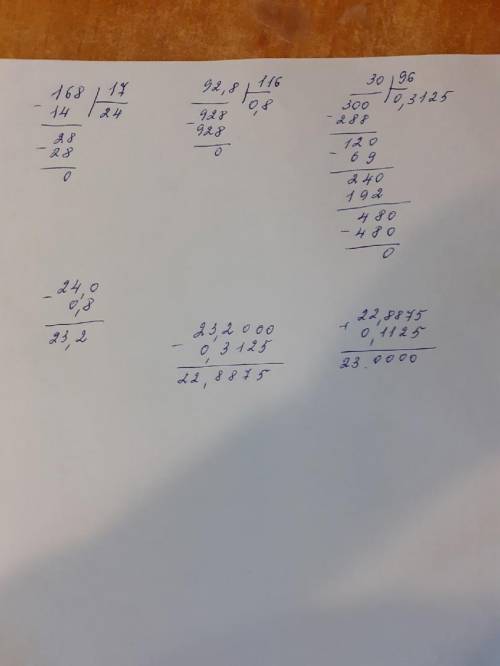 168 | 17
- 14 | 24
28
- 28
0
92,8 | 116
928 | 0,8
- 928
0
30 | 96
300 | 0,3125
- 288
120
- 69
240
192
480
- 480
0
- 24,0
0,8
23,2
- 23,2000
0,3125
22,8875
+ 22,8875
0,1125
23.0000